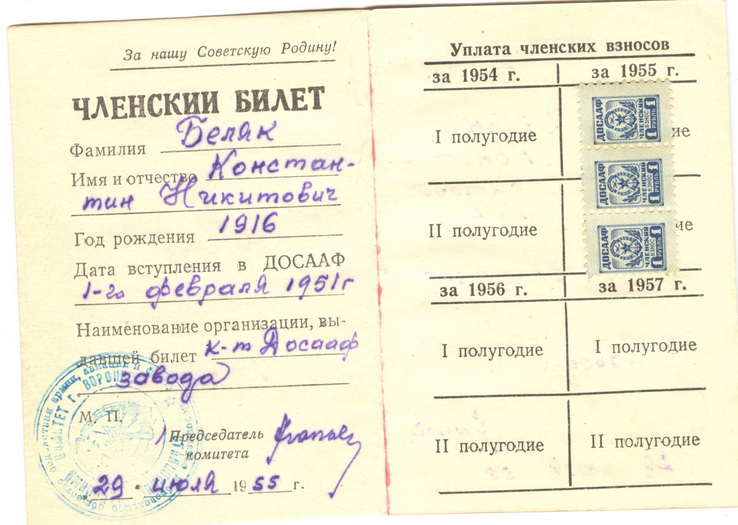 За нашу Советскую Родину!
ЧЛЕНСКИЙ БИЛЕТ
Фамилия Беляк
Имя и отчество Констан-
тин Никитович
Год рождения 1916
Дата вступления в ДОСААФ
1-го февраля 1951 г
Наименование организации, вы-
давшей билет к-т Досааф
завода
М. П.
Председатель
комитета
29 июля 1955 г.
КОМИТЕТ г. ВОРОН
Уплата членских взносов
за 1954 г. за 1955 г.
I полугодие ие
II полугодие ие
ДОСААФ ЧЛЕНСКИЙ ВЗНОС 1 РУБЛЬ
ДОСААФ ЧЛЕНСКИЙ ВЗНОС 1 РУБЛЬ
ДОСААФ ЧЛЕНСКИЙ ВЗНОС 1 РУБЛЬ
за 1956 г. за 1957 г.
I полугодие I полугодие
II полугодие II полугодие